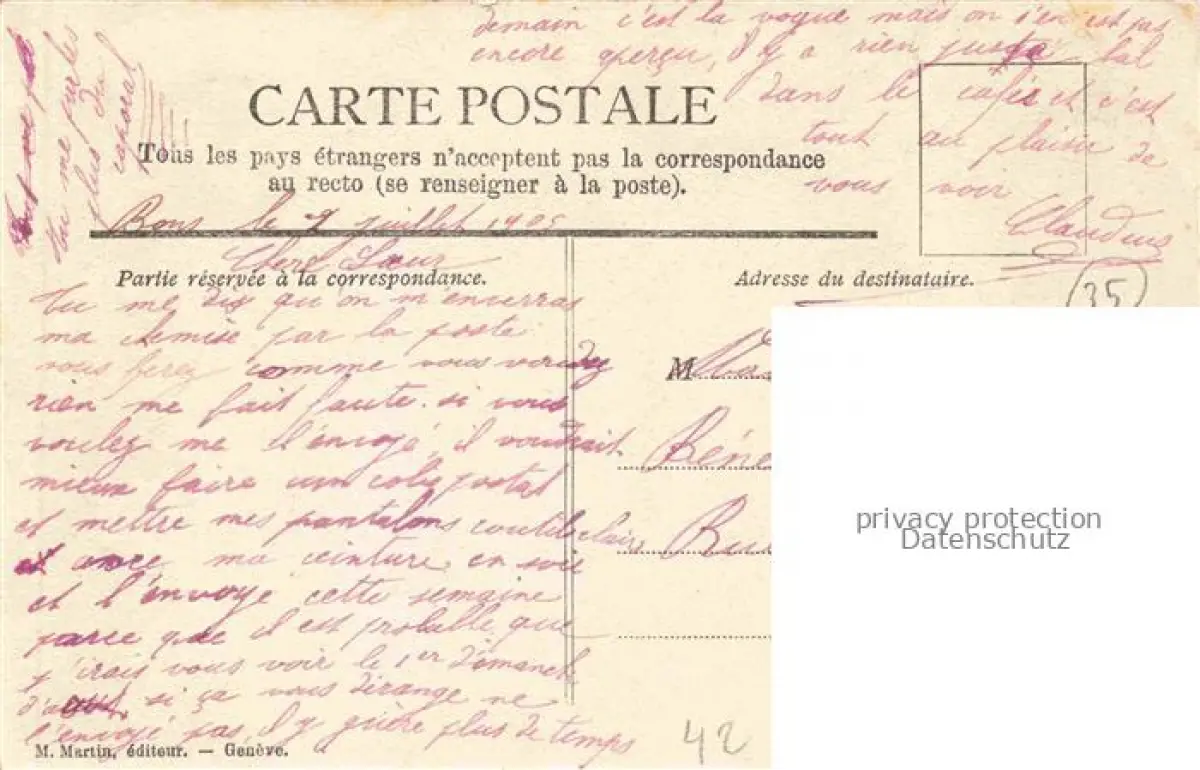 demain c'est la vogue mais on s'en est pas
encore aperçu, il y a rien juste bal
dans le cafés et c'est
tout au plaisir de
vous voir
Claudius
CARTE POSTALE
Tous les pays étrangers n'acceptent pas la correspondance
au recto (se renseigner à la poste).
tu me parles
plus du
caporal
Bons le 7 juillet 1905
Chère Sœur
Partie réservée à la correspondance.
Adresse du destinataire.
35
Tu me dis qu'on m'enverras
ma chemise par la poste
vous ferez comme vous voudrez
rien me fait faute. si vous
voulez me l'envoyé, il voudrait
mieux faire un colis postal
et mettre mes pantalons coutil clairs
et avec ma ceinture en soie
et l'envoye cette semaine
parce que il est probable que
j'irais vous voir le 1er dimanche
d'août, si ça vous dérange ne
l'envoyé pas, il y guère plus de temps
M
Béné
Bu
privacy protection
Datenschutz
M. Martin, éditeur. — Genève.
42